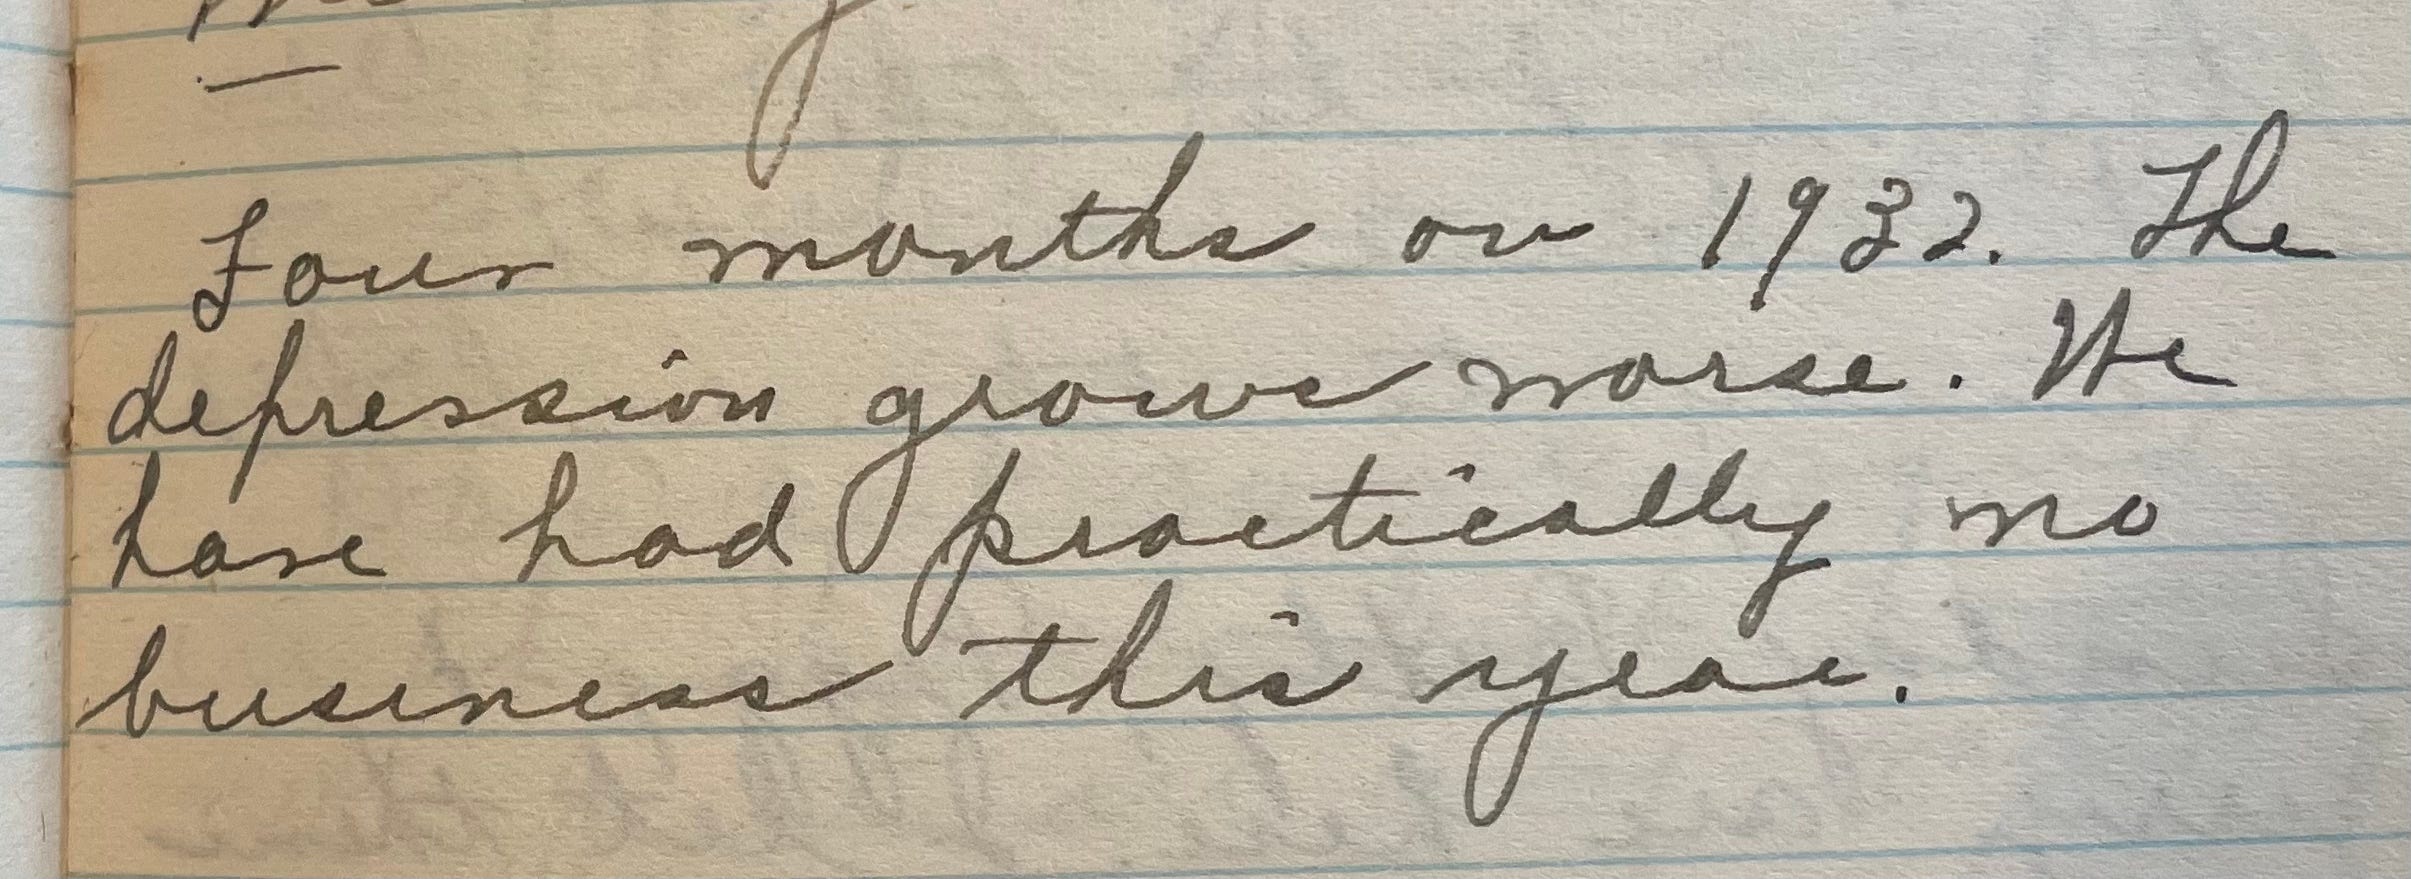 Four months on 1932. The
depression grows worse. We
have had practically no
business this year.